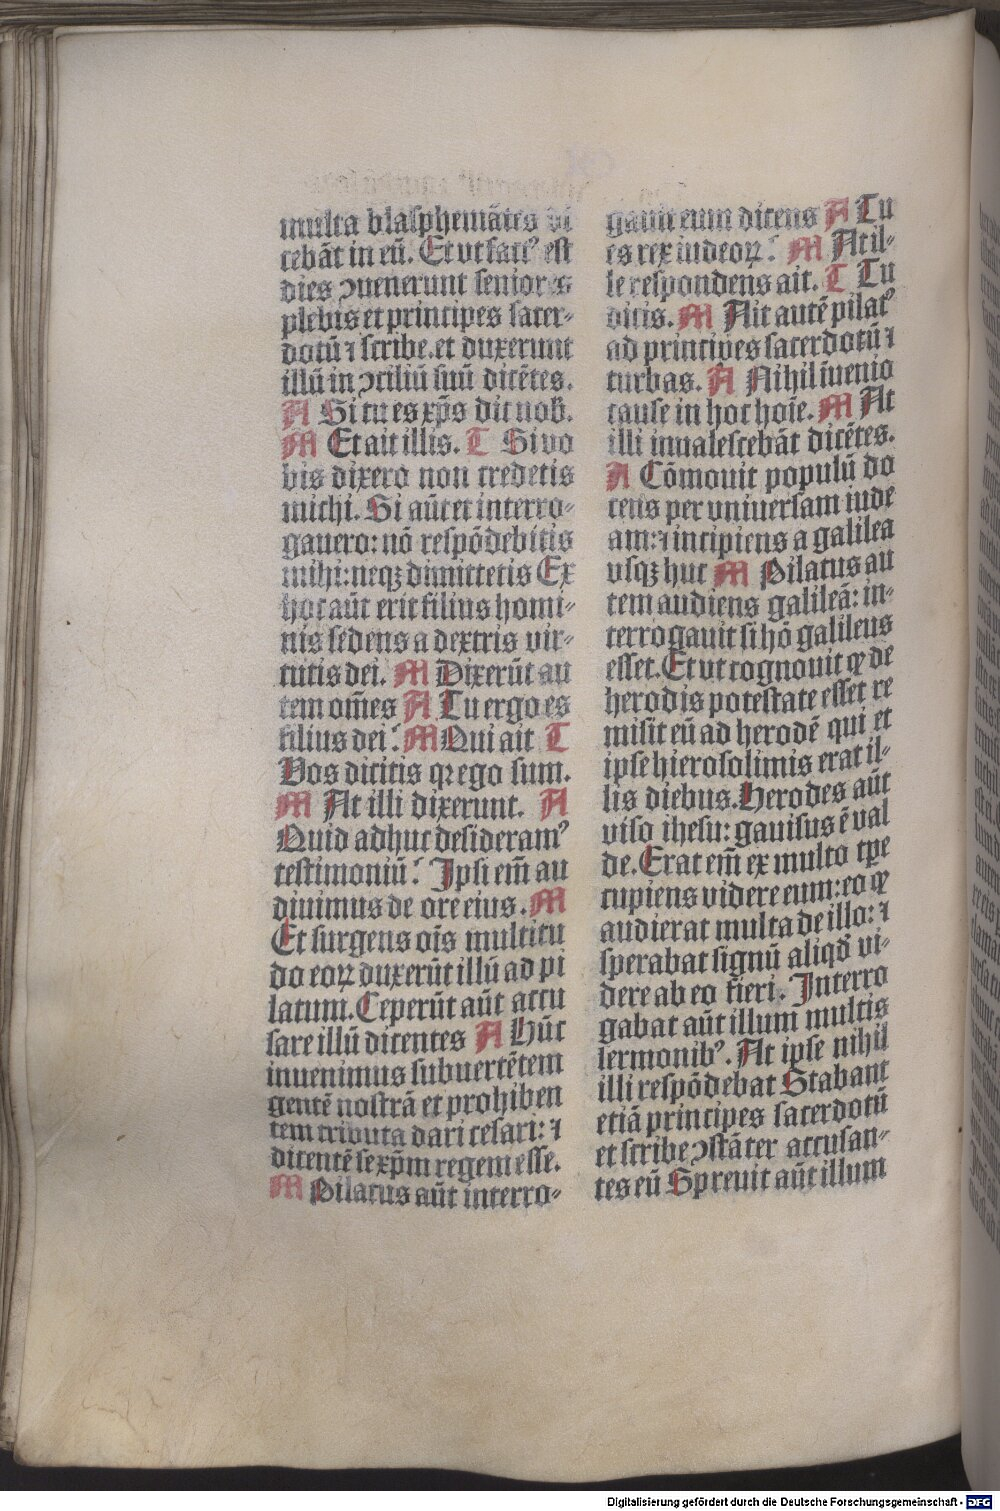 multa blasphemātes di
cebāt in eū. Et ut factꝰ est
dies ꝯuenerunt seniores
plebis et principes sacer-
dotū ⁊ scribe. et duxerunt
illū in ꝯciliū suū dicētes.
A Si tu es xp̄s dic nob̄.
M Et ait illis. T Si vo
bis dixero non credetis
michi. Si aūt et interro-
gauero: nō respōdebitis
mihi: neqꝫ dimittetis Ex
hoc aūt erit filius homi-
nis sedens a dextris vir-
tutis dei. M Dixerūt au
tem om̄es A Tu ergo es
filius dei? M Qui ait T
Vos dicitis qꝛ ego sum.
M At illi dixerunt. A
Quid adhuc desideramꝰ
testimoniū? Ipsi em̄ au
diuimus de ore eius. M
Et surgens oīs multitu
do eoꝝ duxerūt illū ad pi
latum. Ceperūt aūt accu
sare illū dicentes A Hūc
inuenimus subuertētem
gentē nostrā et prohiben
tem tributa dari cesari: ⁊
dicentē se xp̄m regem esse.
M Pilatus aūt interro-
gauit eum dicens A Tu
es rex iudeoꝝ? M At il-
le respondens ait. T Tu
dicis. M Ait autē pilatꝰ
ad principes sacerdotū ⁊
turbas. A Nihil īuenio
cause in hoc hoīe. M At
illi inualescebāt dicētes.
A Cōmouit populū do
cens per uniuersam iude
am: ⁊ incipiens a galilea
usqꝫ huc M Pilatus au
tem audiens galileā: in-
terrogauit si hō galileus
esset. Et ut cognouit ꝙ de
herodis potestate esset re
misit eū ad herodē qui et
ipse hierosolimis erat il-
lis diebus. Herodes aūt
viso ihesu: gauisus ē val
de. Erat em̄ ex multo tp̄e
cupiens videre eum: eo ꝙ
audierat multa de illo: ⁊
sperabat signū aliqd̄ vi-
dere ab eo fieri. Interro
gabat aūt illum multis
sermonibꝰ. At ipse nihil
illi respōdebat Stabant
etiā principes sacerdotū
et scribe ꝯstāter accusan-
tes eū Spreuit aūt illum
Digitalisierung gefördert durch die Deutsche Forschungsgemeinschaft - DFG